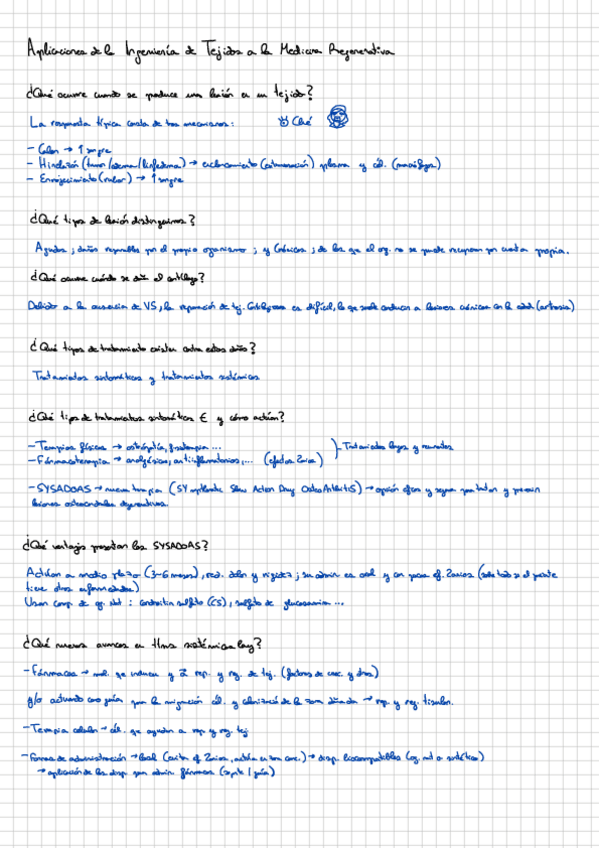 Aplicaciones de la Ingeniería de Tejidos a la Medicina Regenerativa
¿Qué ocurre cuando se produce una lesión en un tejido?
La respuesta típica consta de tres mecanismos:
- Calor → ↑ sangre
- Hinchazón (tumor/edema/linfedema) → plasma y cél. (macrófagos)
- Enrojecimiento (rubor) → ↑ sangre
¿Qué tipos de lesión distinguimos?
Agudas ; daños reparables por el propio organismo ; y Crónicas ; de las que el org. no se puede recuperar por cuenta propia.
¿Qué ocurre cuándo se daña el cartílago?
Debido a la ausencia de VS, la reparación de tej. Cartilaginoso es difícil, lo que suele conducir a lesiones crónicas con la edad (artrosis)
¿Qué tipos de tratamiento existen contra estos daños?
Tratamientos sintomáticos y tratamientos sistémicos
¿Qué tipos de tratamientos sintomáticos ∈ y cómo actúan?
- Terapias físicas → fisioterapia ...
- Tratamientos largos y recurrentes
- Fármacoterapia → analgésicos, antiinflamatorios, ... (efectos 2arios)
- SYSADOAS → nueva terapia (SYmptomatic Slow Action Drug OsteoArthritiS) → opción eficaz y segura para tratar y prevenir
lesiones osteocondrales degenerativas.
¿Qué ventajas presentan los SYSADOAS?
Actúan a medio plazo (3-6 meses), red. dolor y rigidez ; su admin es oral y con pocos ef. 2arios (sobre todo si el paciente
tiene otras enfermedades)
Usan comp. de og. Nat : condroitin sulfato (CS), sulfato de glucosamina ...
¿Qué nuevos avances en ttms sistémicos hay?
- Fármacos → mol. que inducen y rep. y reg. de tej. (factores de crec. y otros)
y/o actuando como guía para la migración cél. y colonización de la zona dañada → rep. y reg. tisular.
- Terapia celular → cél. que ayudan a rep. y reg. tej
- Formas de administración → local (evita ef. 2arios, actúa en zona conc.) → disp. biocompatibles (og. nat o sintético)
→ aplicación de los disp. para admin. fármacos (soporte / guía)